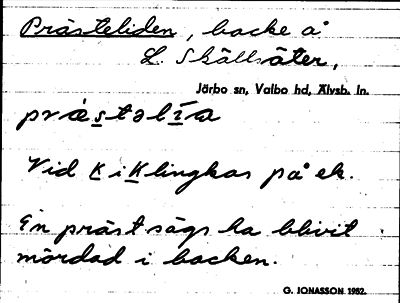 Prästeliden, backe å
L. Skällsäter,
Järbo sn, Valbo hd, Älvsb. ln.
præ̀stəlīa
Vid K i Klingkas på ek.
En präst sägs ha blivit
mördad i backen.
G. JONASSON 1952.